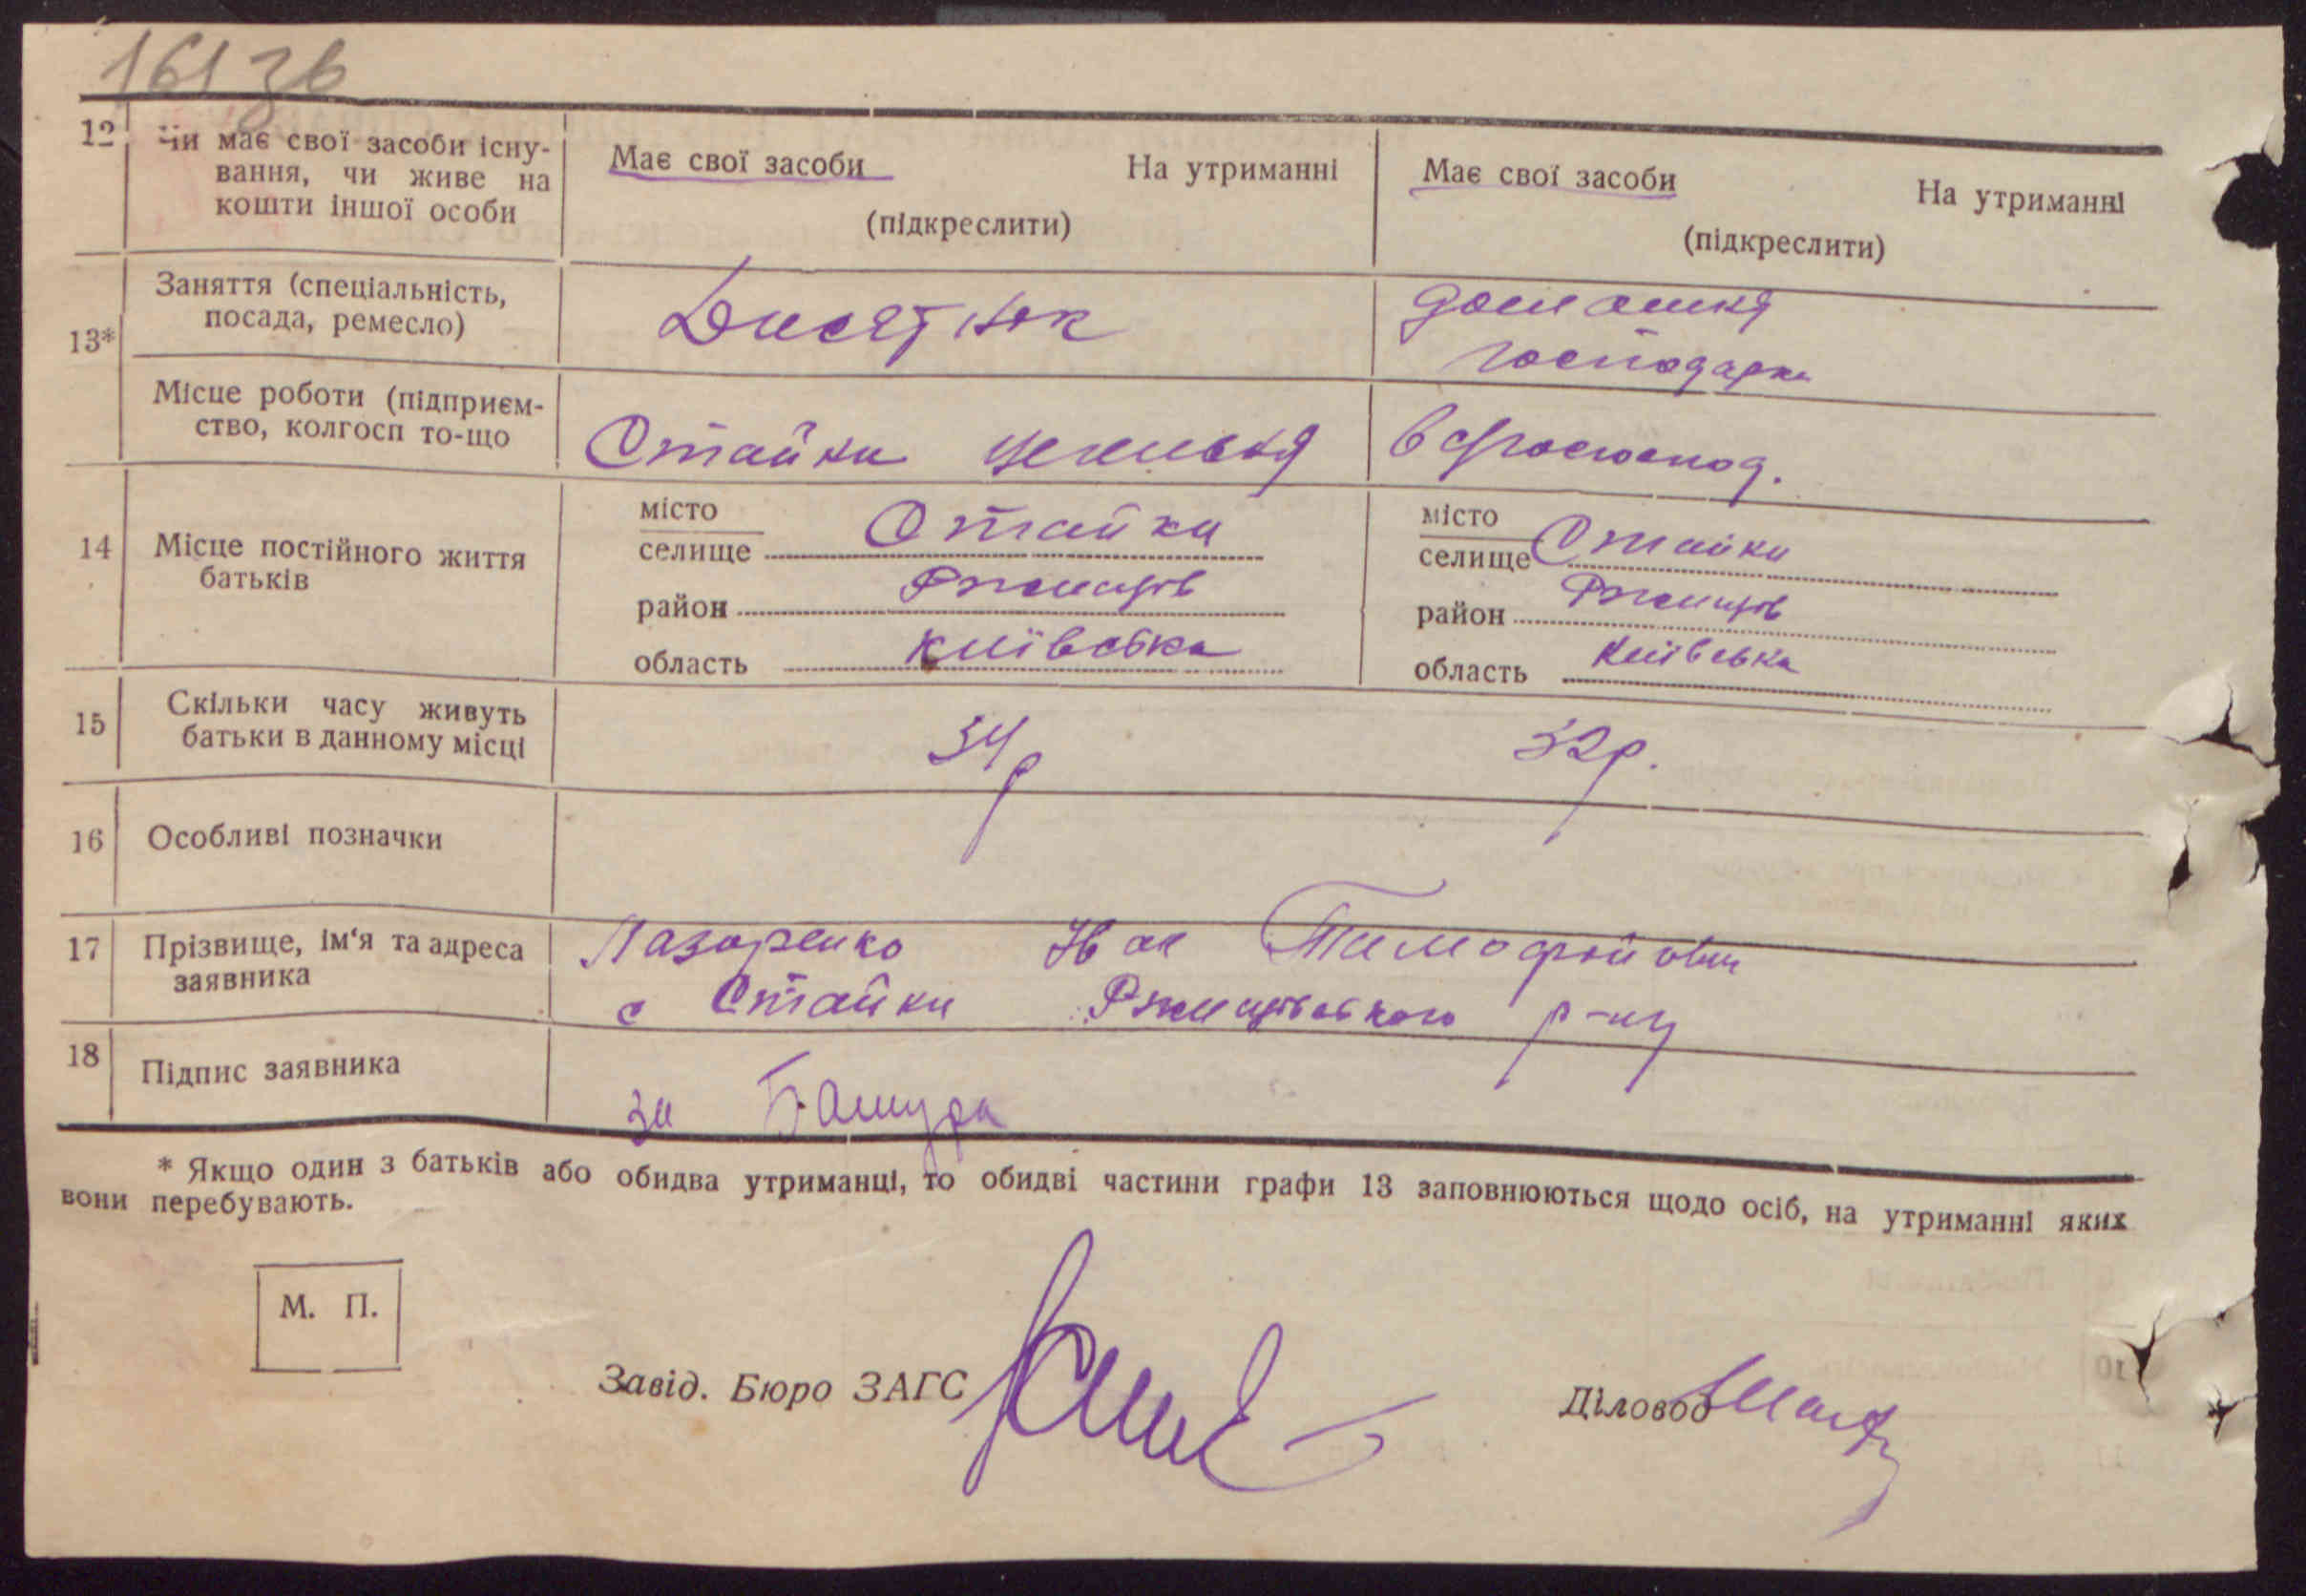 161 зв
12 Чи має свої засоби існу-
вання, чи живе на
кошти іншої особи
Має свої засоби На утриманні
(підкреслити)
Має свої засоби На утриманні
(підкреслити)
13* Заняття (спеціальність,
посада, ремесло)
Дисятнік
домашня
господарка
Місце роботи (підприєм-
ство, колгосп то-що
Стайки цегельня
в сгосюспод.
14 Місце постійного життя
батьків
місто
селище Стайки
район Ржищів
область київська
місто
селище Стайки
район Ржищів
область Київська
15 Скільки часу живуть
батьки в данному місці
34р
32р.
16 Особливі позначки
17 Прізвище, ім‘я та адреса
заявника
Лазаренко Іван Тимофійович
с Стайки Ржищівського р-ну
18 Підпис заявника
за
* Якщо один з батьків або обидва утриманці, то обидві частини графи 13 заповнюються щодо осіб, на утриманні яких
вони перебувають.
М. П.
Завід. Бюро ЗАГС
Діловод